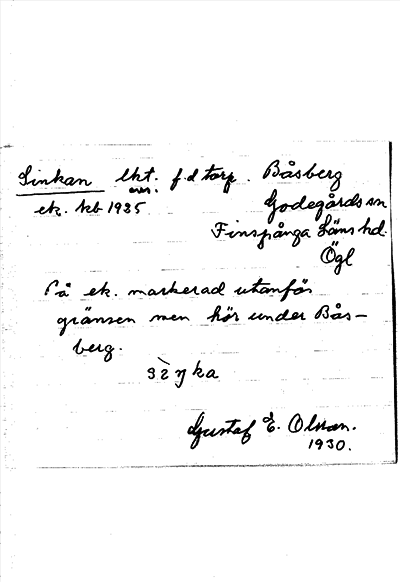 Sinkan lht. f.d torp. Båsberg
ek. kb 1935 Godegårds sn
Finspånga Läns hd.
Ögl
På ek. markerad utanför
gränsen men hör under Bås-
berg.
Gustaf E. Olsson.
1930.